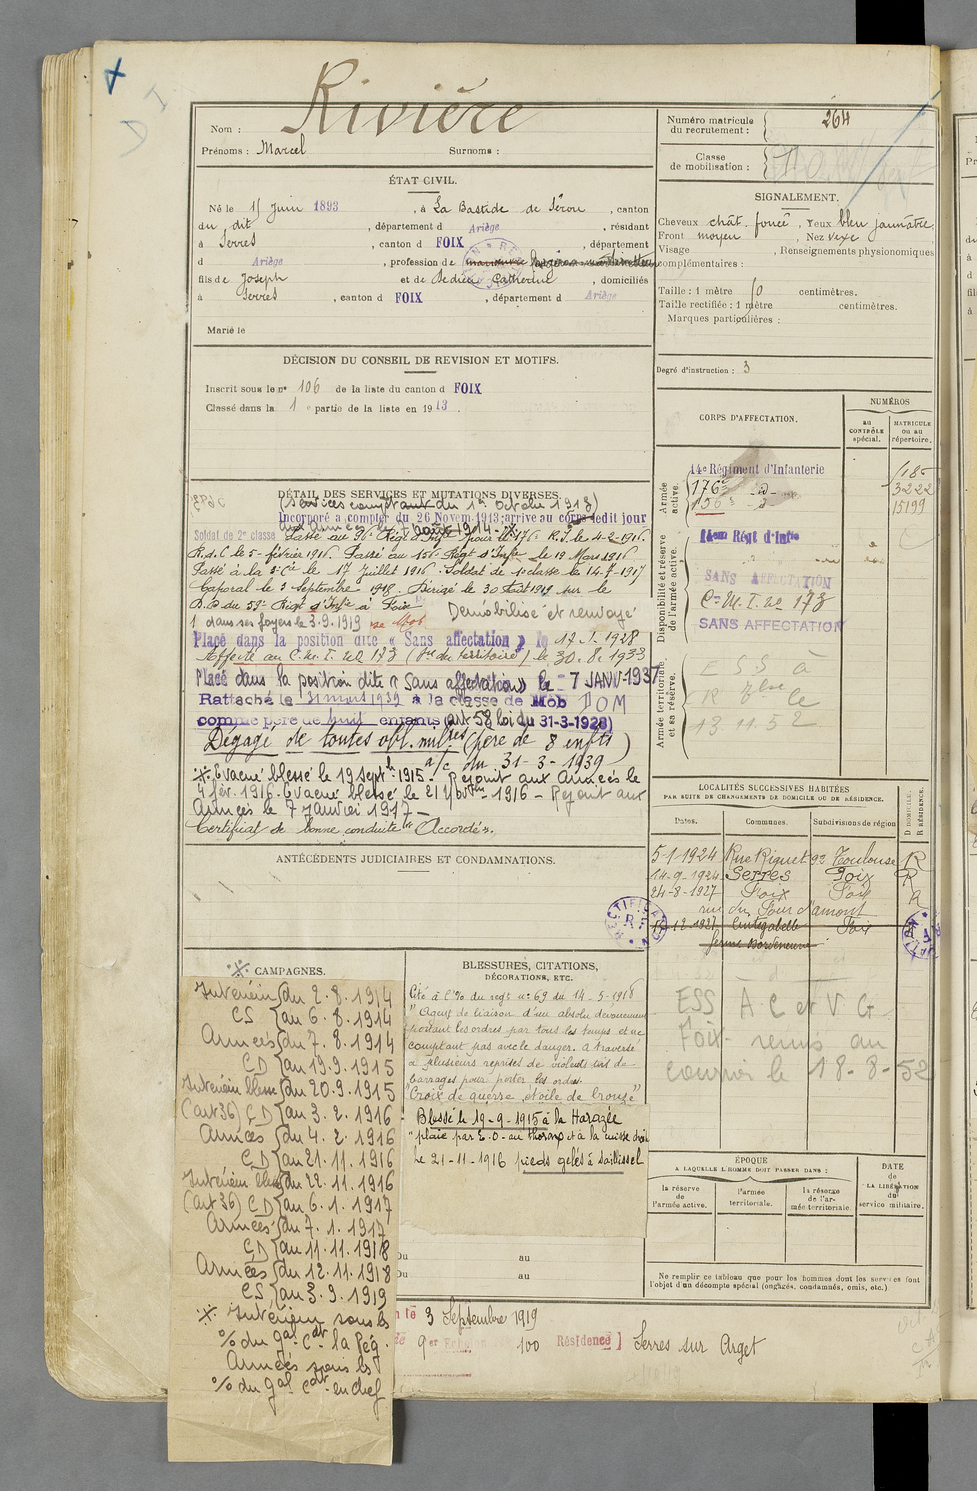 Rivière
Nom :
Prénoms : Marcel Surnoms :
Numéro matricule du recrutement : 264
Classe de mobilisation :
ÉTAT CIVIL.
Né le 15 Juin 1893, à La Bastide de Sérou, canton
du dit, département d Ariège, résidant
à Serres, canton d FOIX, département
d Ariège, profession de
fils de Joseph et de Catherine, domiciliés
à Serres, canton d FOIX, département d Ariège
Marié le
SIGNALEMENT.
Cheveux chât. foncé, Yeux bleu jaunâtre
Front moyen, Nez vexe
Visage , Renseignements physionomiques
complémentaires :
Taille : 1 mètre centimètres.
Taille rectifiée : 1 mètre centimètres.
Marques particulières :
Degré d'instruction : 3
DÉCISION DU CONSEIL DE REVISION ET MOTIFS.
Inscrit sous le n° 106 de la liste du canton d FOIX
Classé dans la 1 partie de la liste en 1913.
CORPS D'AFFECTATION.
NUMÉROS
au CONTRÔLE spécial.
MATRICULE ou au répertoire.
Armée active.
14e Régiment d'Infanterie
176e
156e
3222
15199
Disponibilité et réserve de l'armée active.
14eme Régt d'Infie
SANS AFFECTATION
C.M.I. no 173
SANS AFFECTATION
Armée territoriale et sa réserve.
ESS à
le
13.11.52
DÉTAIL DES SERVICES ET MUTATIONS DIVERSES.
(Services comptant du 1er Octobre 1913)
Incorporé à compter du 26 Novem. 1913; arrivé au corps ledit jour
aux armées le août 1914
Soldat de 2e classe Passé au 96e Régt d'Infie pour le 176e R.I. le 4-2-1916.
R.d.C le 5-février 1916. Passé au 156e Régt d'Infie le 19 Mars 1916
Passé à la 3e Cie le 17 Juillet 1916. Soldat de 1e classe le 14-7-1917
Caporal le 2 Septembre 1918. Dirigé le 30 Août 1919 sur le
D.D du 59e Régt d'Infie à Foix Démobilisé et renvoyé
dans ses foyers le 3.9.1919
Placé dans la position dite « Sans affectation » le 12.5.1928
Affecté au C.M.I. no 173 le 30.8.1933
Placé dans la position dite « Sans affectation » le 7 JANV 1937
Rattaché le 31 mars 1939 à la classe de Mob DOM
comme père de huit enfants (art 58 loi du 31-3-1928)
Dégagé de toutes obl. milres (père de 8 enfts)
a/c du 31-3-1939
※ Evacué blessé le 19 septbre 1915. Rejoint aux Armées le
4 fév. 1916. Evacué blessé le 21 9bre 1916 – Rejoint aux
Armées le 7 janvier 1917 –
Certificat de bonne conduite Accordé.
ANTÉCÉDENTS JUDICIAIRES ET CONDAMNATIONS.
LOCALITÉS SUCCESSIVES HABITÉES
PAR SUITE DE CHANGEMENTS DE DOMICILE OU DE RÉSIDENCE.
Dates. Communes. Subdivisions de région D DOMICILE. R RÉSIDENCE.
5-1-1924 Rue Riquet 92 Toulouse R
14-9-1924 Serres Foix R
24-8-1927 Foix Foix R
rue du Four d'amont
12-1927 Cintegabelle Foix
ferme Bordeneuve
ESS A C et V G
Foix remis au
courrier le 18-8-52
※ CAMPAGNES.
Intérieur du 2.8.1914
CS au 6.8.1914
Armées du 7.8.1914
CD au 19.9.1915
Intérieur blessé du 20.9.1915
(art 36) CD au 3.2.1916
Armées du 4.2.1916
CD au 21.11.1916
Intérieur blessé du 22.11.1916
(art 36) CD au 6.1.1917
Armées du 7.1.1917
CD au 11.11.1918
Armées du 12.11.1918
CS au 3.9.1919
※ Intérieur sous les
% du gal Cdt la Rég.
Armées sous les
% du gal Cdt en chef
BLESSURES, CITATIONS,
DÉCORATIONS, ETC.
Cité à l'% du regt n° 69 du 14-5-1918
" Agent de liaison d'un absolu dévouement
portant les ordres par tous les temps et ne
comptant pas avec le danger. A traversé
à plusieurs reprises de violents tirs de
barrages pour porter les ordres.
"Croix de guerre, étoile de bronze"
Blessé le 19-9-1915 à la Harazée
"plaie par E.O. au thorax et à la cuisse droite
le 21-11-1916 pieds gelés à Saillisel
Du au
Du au
ÉPOQUE
A LAQUELLE L'HOMME DOIT PASSER DANS :
la réserve de l'armée active. l'armée territoriale. la réserve de l'armée territoriale.
DATE de LA LIBÉRATION du service militaire.
Ne remplir ce tableau que pour les hommes dont les services font
l'objet d'un décompte spécial (engagés, condamnés, omis, etc.)
3 Septembre 1919
100 Résidence] Serres sur Arget